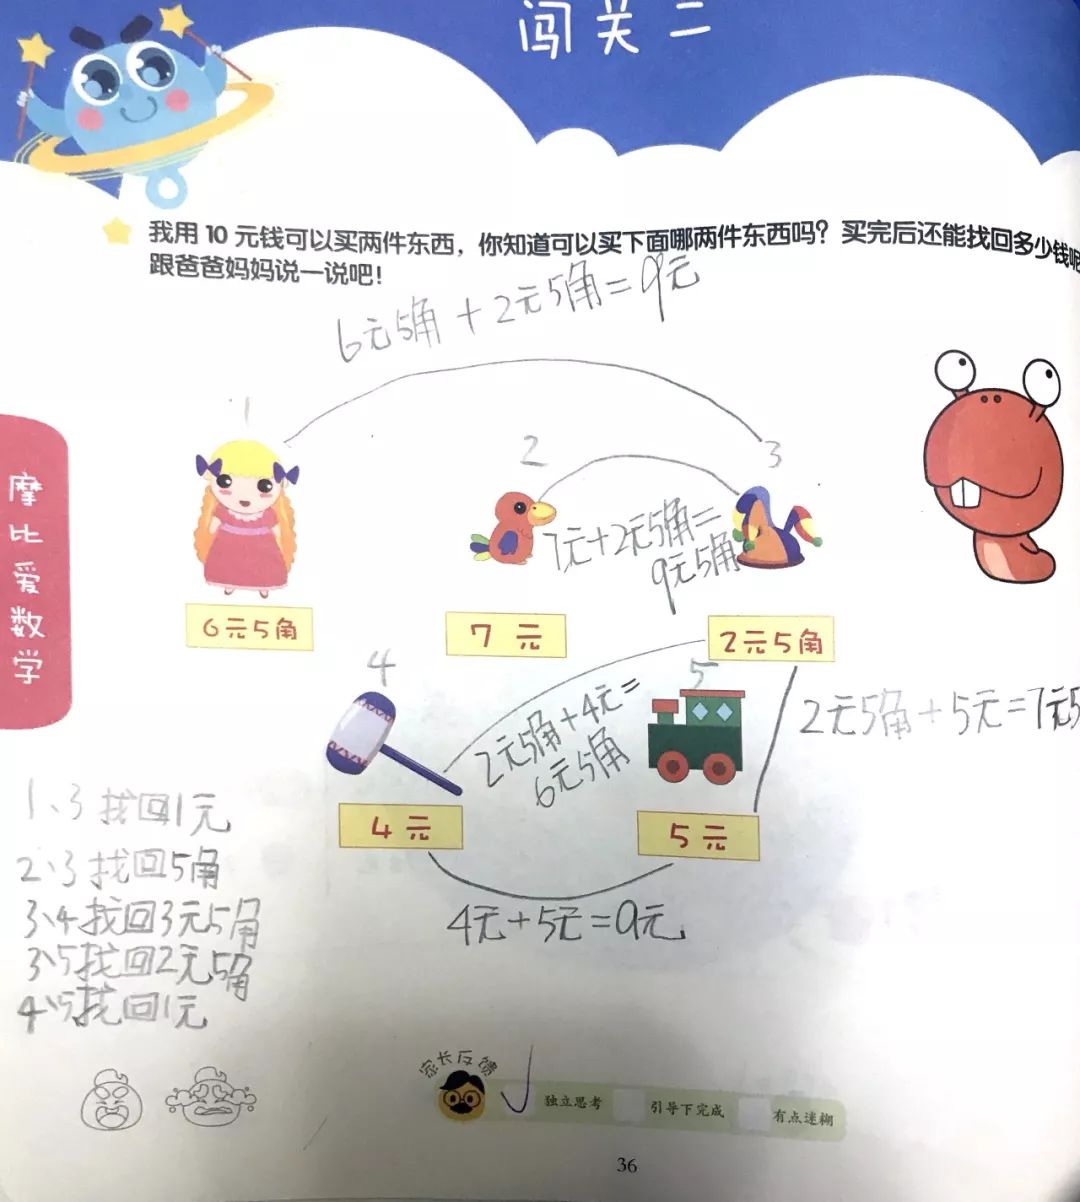 闯关二
我用 10 元钱可以买两件东西，你知道可以买下面哪两件东西吗？买完后还能找回多少钱呢
跟爸爸妈妈说一说吧！
6元5角+2元5角=9元
1
2
3
7元+2元5角=
9元5角
摩比爱数学
6元5角
7 元
2元5角
4
5
2元5角+4元=
6元5角
2元5角+5元=7元5
4元
5元
1、3找回1元
2、3找回5角
3、4找回3元5角
3、5找回2元5角
4、5找回1元
4元+5元=9元
家长反馈
独立思考
引导下完成
有点迷糊
36